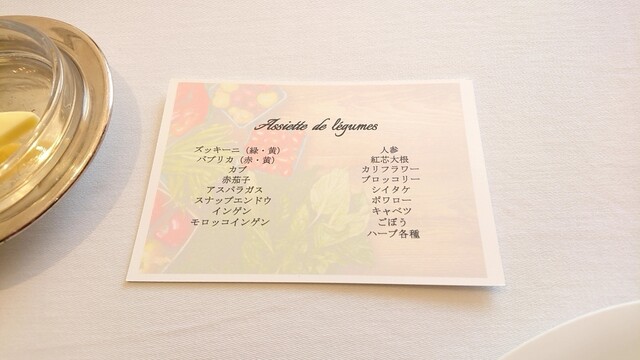 Assiette de légumes
ズッキーニ（緑・黄）
パプリカ（赤・黄）
カブ
赤茄子
アスパラガス
スナップエンドウ
インゲン
モロッコインゲン
人参
紅芯大根
カリフラワー
ブロッコリー
シイタケ
ポワロー
キャベツ
ごぼう
ハーブ各種